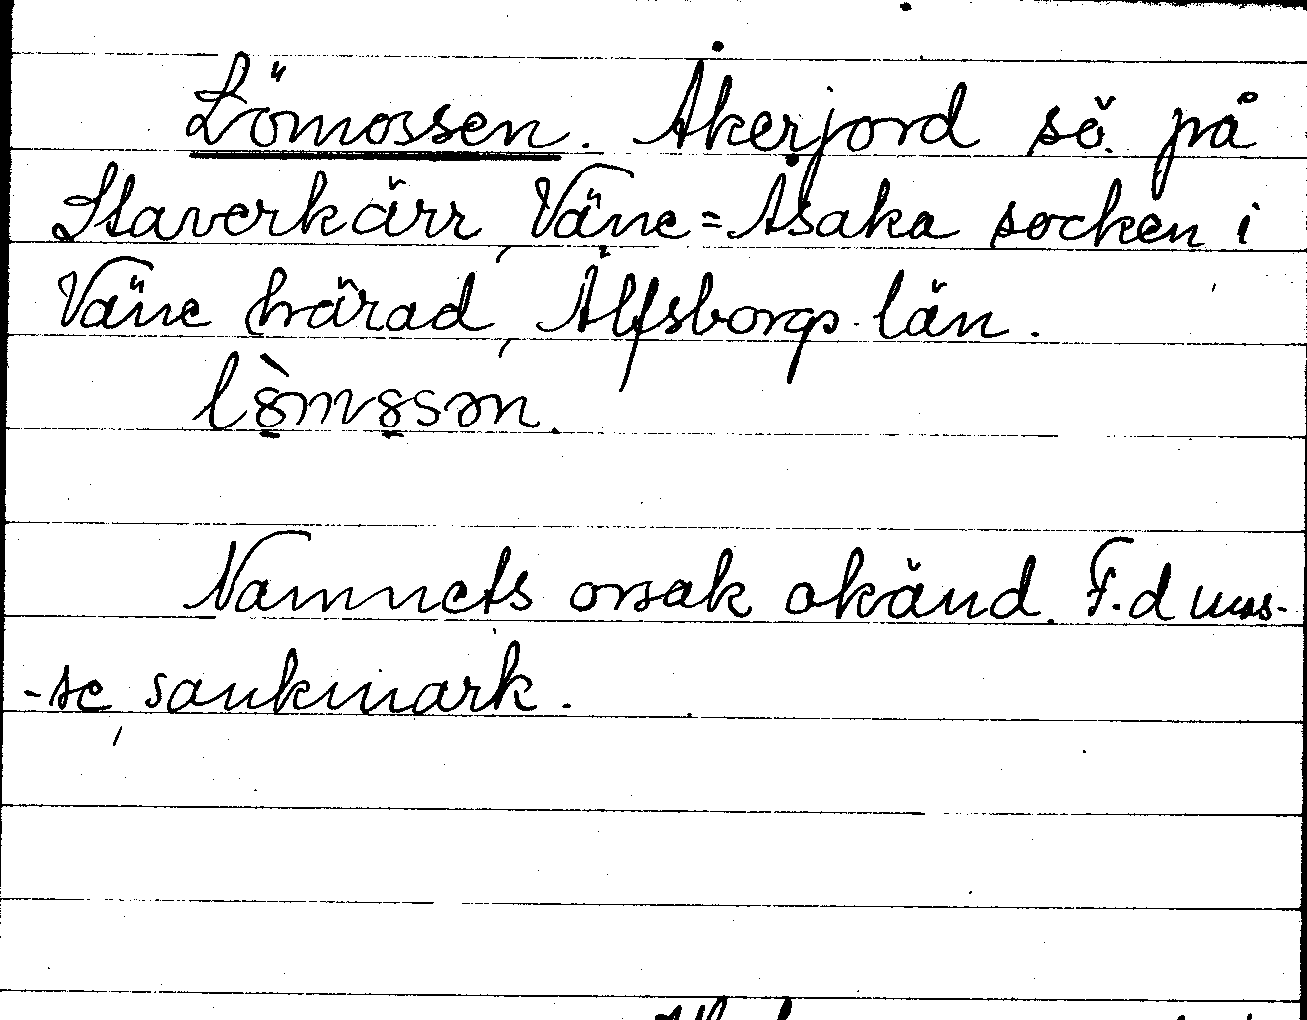 Lömossen. Åkerjord sö. på
Staverkärr, Väne=Åsaka socken i
Väne härad, Älfsborgs län.
Namnets orsak okänd. F.d mos-
-se, sankmark.